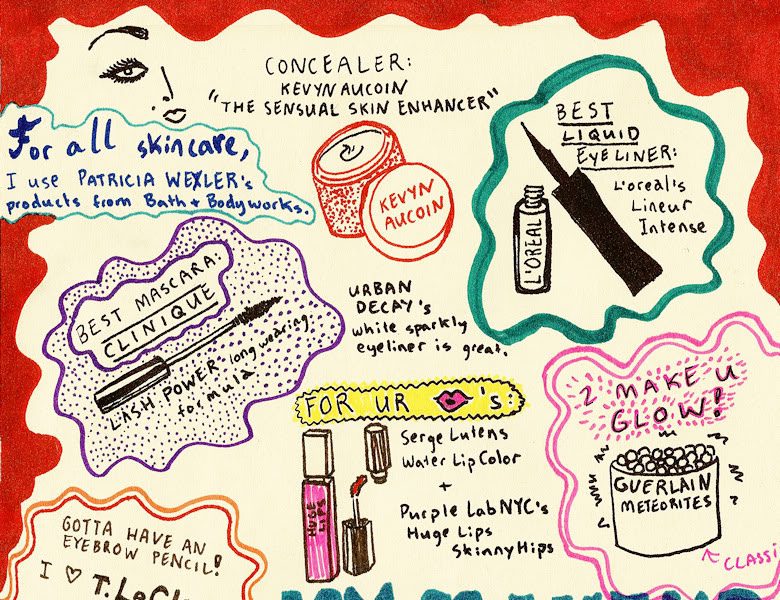 CONCEALER:
KEVYN AUCOIN
"THE SENSUAL SKIN ENHANCER"
KEVYN
AUCOIN
For all skincare,
I use PATRICIA WEXLER's
products from Bath + Bodyworks.
BEST
LIQUID
EYELINER:
L'oreal's
Lineur
Intense
L'OREAL
BEST MASCARA:
CLINIQUE
LASH POWER long wearing
formula
URBAN
DECAY's
white sparkly
eyeliner is great.
FOR UR 's:
Serge Lutens
Water Lip Color
+
Purple Lab NYC's
Huge Lips
Skinny Hips
HUGE
LIPS
2 MAKE U
GLOW!
GUERLAIN
METEORITES
CLASSI
GOTTA HAVE AN
EYEBROW PENCIL!
I ♡ T.